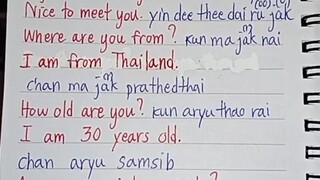 Nice to meet you. yin dee thee dai ru jak
Where are you from? kun ma jak nai
I am from Thailand.
chan ma jak prathedthai
How old are you? kun aryu thao rai
I am 30 years old.
chan aryu samsib